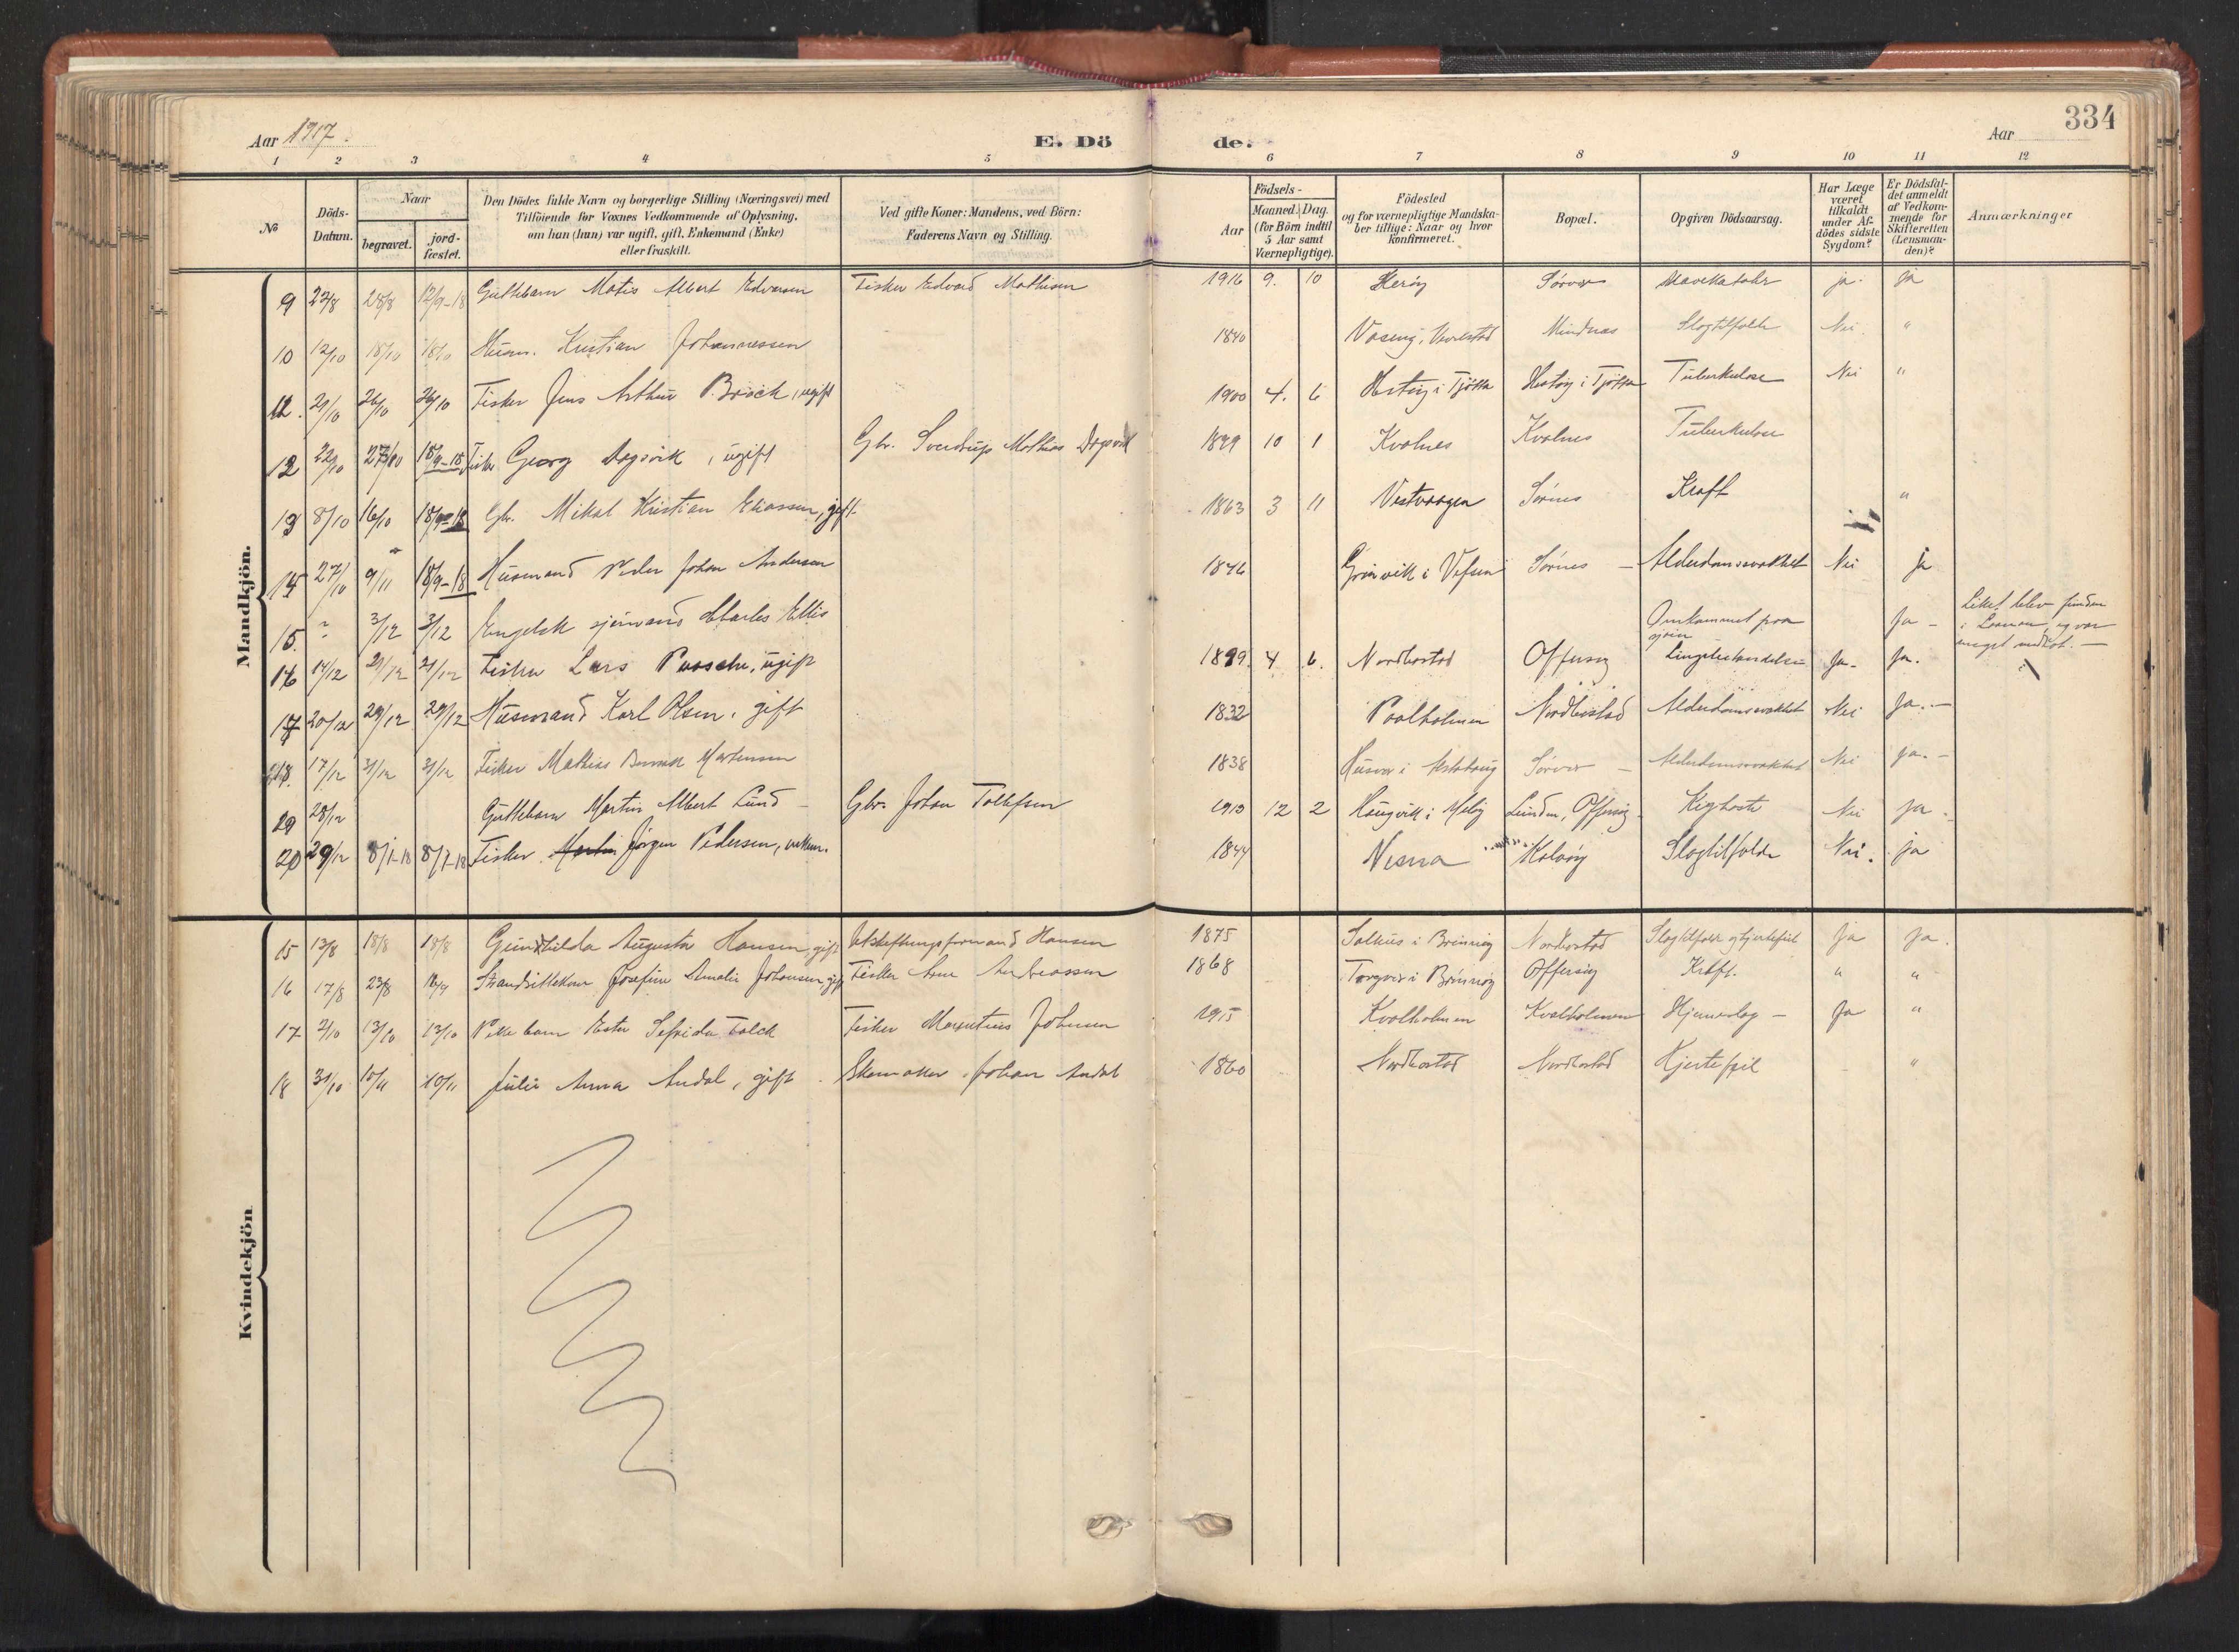 334
Aar 1917. E. Dö de. Aar
1 2 3 4 5 6 7 8 9 10 11 12
№ Döds-Datum. Naar begravet. jord-fæstet. Den Dödes fulde Navn og borgerlige Stilling (Næringsvei) med Tilföiende for Voxnes Vedkommende af Oplysning, om han (hun) var ugift, gift, Enkemand (Enke) eller fraskilt. Ved gifte Koner: Mandens, ved Börn: Faderens Navn og Stilling. Födsels- Aar Maaned. Dag. (for Börn indtil 5 Aar samt Værnepligtige). Födested og for værnepligtige Mandskaber tillige: Naar og hvor konfirmeret. Bopæl. Opgiven Dödsaarsag. Har Læge været tilkaldt under Afdödes sidste Sygdom? Er Dödsfaldet anmeldt af Vedkommende for Skifteretten (Lensmanden)? Anmærkninger
Mandkjön.
9 22/8 28/8 12/9-18 Guttebarn Matis Albert Edvarsen Fisker Edvard Mathisen 1916 9. 10 Herøy Sørvær Mavekatahr ja. ja
10 12/10 18/10 18/10 Husm. Kristian Johannessen 1840 Mindnes Slagtilfælde Nei. "
12. 21/10 26/10 26/10 Fisker Jens Arthur P. Brock, ugift 1900 4. 6 Hestøy i Tjøtta Hestøy i Tjøtta Tuberkulose Nei "
12 22/10 27/10 18/9-18 Fisker Georg Dagsvik, ugift Gbr. Sverdrup Mathias Dagsvik 1899 10 1 Kvalnes Kvalnes Tuberkulose
13 8/10 16/10 18/9-18 Gbr. Mikal Kristian Eliassen, gift 1863 3 11 Vestvaagen Sørnes Kræft "
14 27/10 9/11 18/9-18 Husmand Peder Johan Andersen 1846 Grönvik i Vefsen Sørnes – Alderdomssvakhet Nei ja
15. ? 3/12 3/12 Engelsk sjömand Charles Ellis Omkommet paa sjöen Ja – Liket blev funden i Laanan, og var meget
16 14/12 21/12 21/12 Fisker Lars Paasche, ugift 1899. 4 6. Nordbostad Offersøy Lungebetændelse Ja. Ja.
17 20/12 29/12 29/12 Husmand Karl Olsen, gift 1832 Paalholmen Nordbostad Alderdomssvakhet Nei Ja. –
18. 17/12 31/12 31/12 Fisker Mathias Mortensen 1838 Husvær i Alstahaug Sørvær – Alderdomssvakhet Nei ja. –
19 28/12 Guttebarn Martin Albert Lund – Gbr. Johan Tollefsen 1913 12 2 Haugvik i Meløy Lunden, Offersøy Kighoste Nei ja.
20 29/12 8/1-18 8/7-18 Fisker Martin Jörgen Pedersen, enkem. 1844 Nesna Kalvøy Slagtilfælde Nei. ja
Kvindekjön
15 13/8 18/8 18/8 Gunhilda Augusta Hansen, gift Utskiftningsformand Hansen 1875 Salhus i Brönnöy Nordbostad Slagtilfælde og hjertefeil Ja Ja.
16 17/8 23/8 Strandsitterkone Josefine Amalie Johansen, gift Fisker Arne Andreassen 1868 Torgvær i Brönnöy Offersøy Kræft. " "
17 2/10 13/10 13/10 Pikebarn Ester Sefride Falck Fisker Johnsen 1915 Kvalholmen Kvalholmen Hjerneslag – Ja "
18 31/10 10/11 10/11 Julie Anna Andal, gift Skomaker Johan Andal 1860 Nordbostad Nordbostad Hjertefeil "